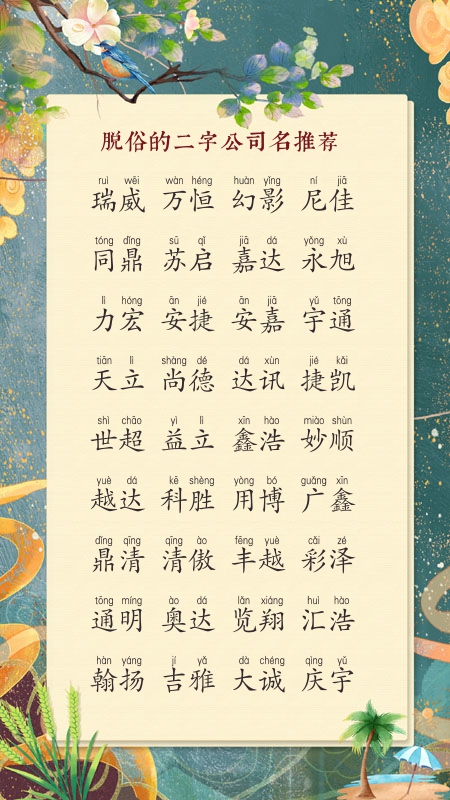 脱俗的二字公司名推荐
ruì wēi wàn héng huàn yǐng ní jiā
瑞威 万恒 幻影 尼佳
tóng dǐng sū qǐ jiā dá yǒng xù
同鼎 苏启 嘉达 永旭
lì hóng ān jié ān jiā yǔ tōng
力宏 安捷 安嘉 宇通
tiān lì shàng dé dá xùn jié kǎi
天立 尚德 达讯 捷凯
shì chāo yì lì xīn hào miào shùn
世超 益立 鑫浩 妙顺
yuè dá kē shèng yòng bó guǎng xīn
越达 科胜 用博 广鑫
dǐng qīng qīng ào fēng yuè cǎi zé
鼎清 清傲 丰越 彩泽
tōng míng ào dá lǎn xiáng huì hào
通明 奥达 览翔 汇浩
hàn yáng jí yǎ dà chéng qìng yǔ
翰扬 吉雅 大诚 庆宇